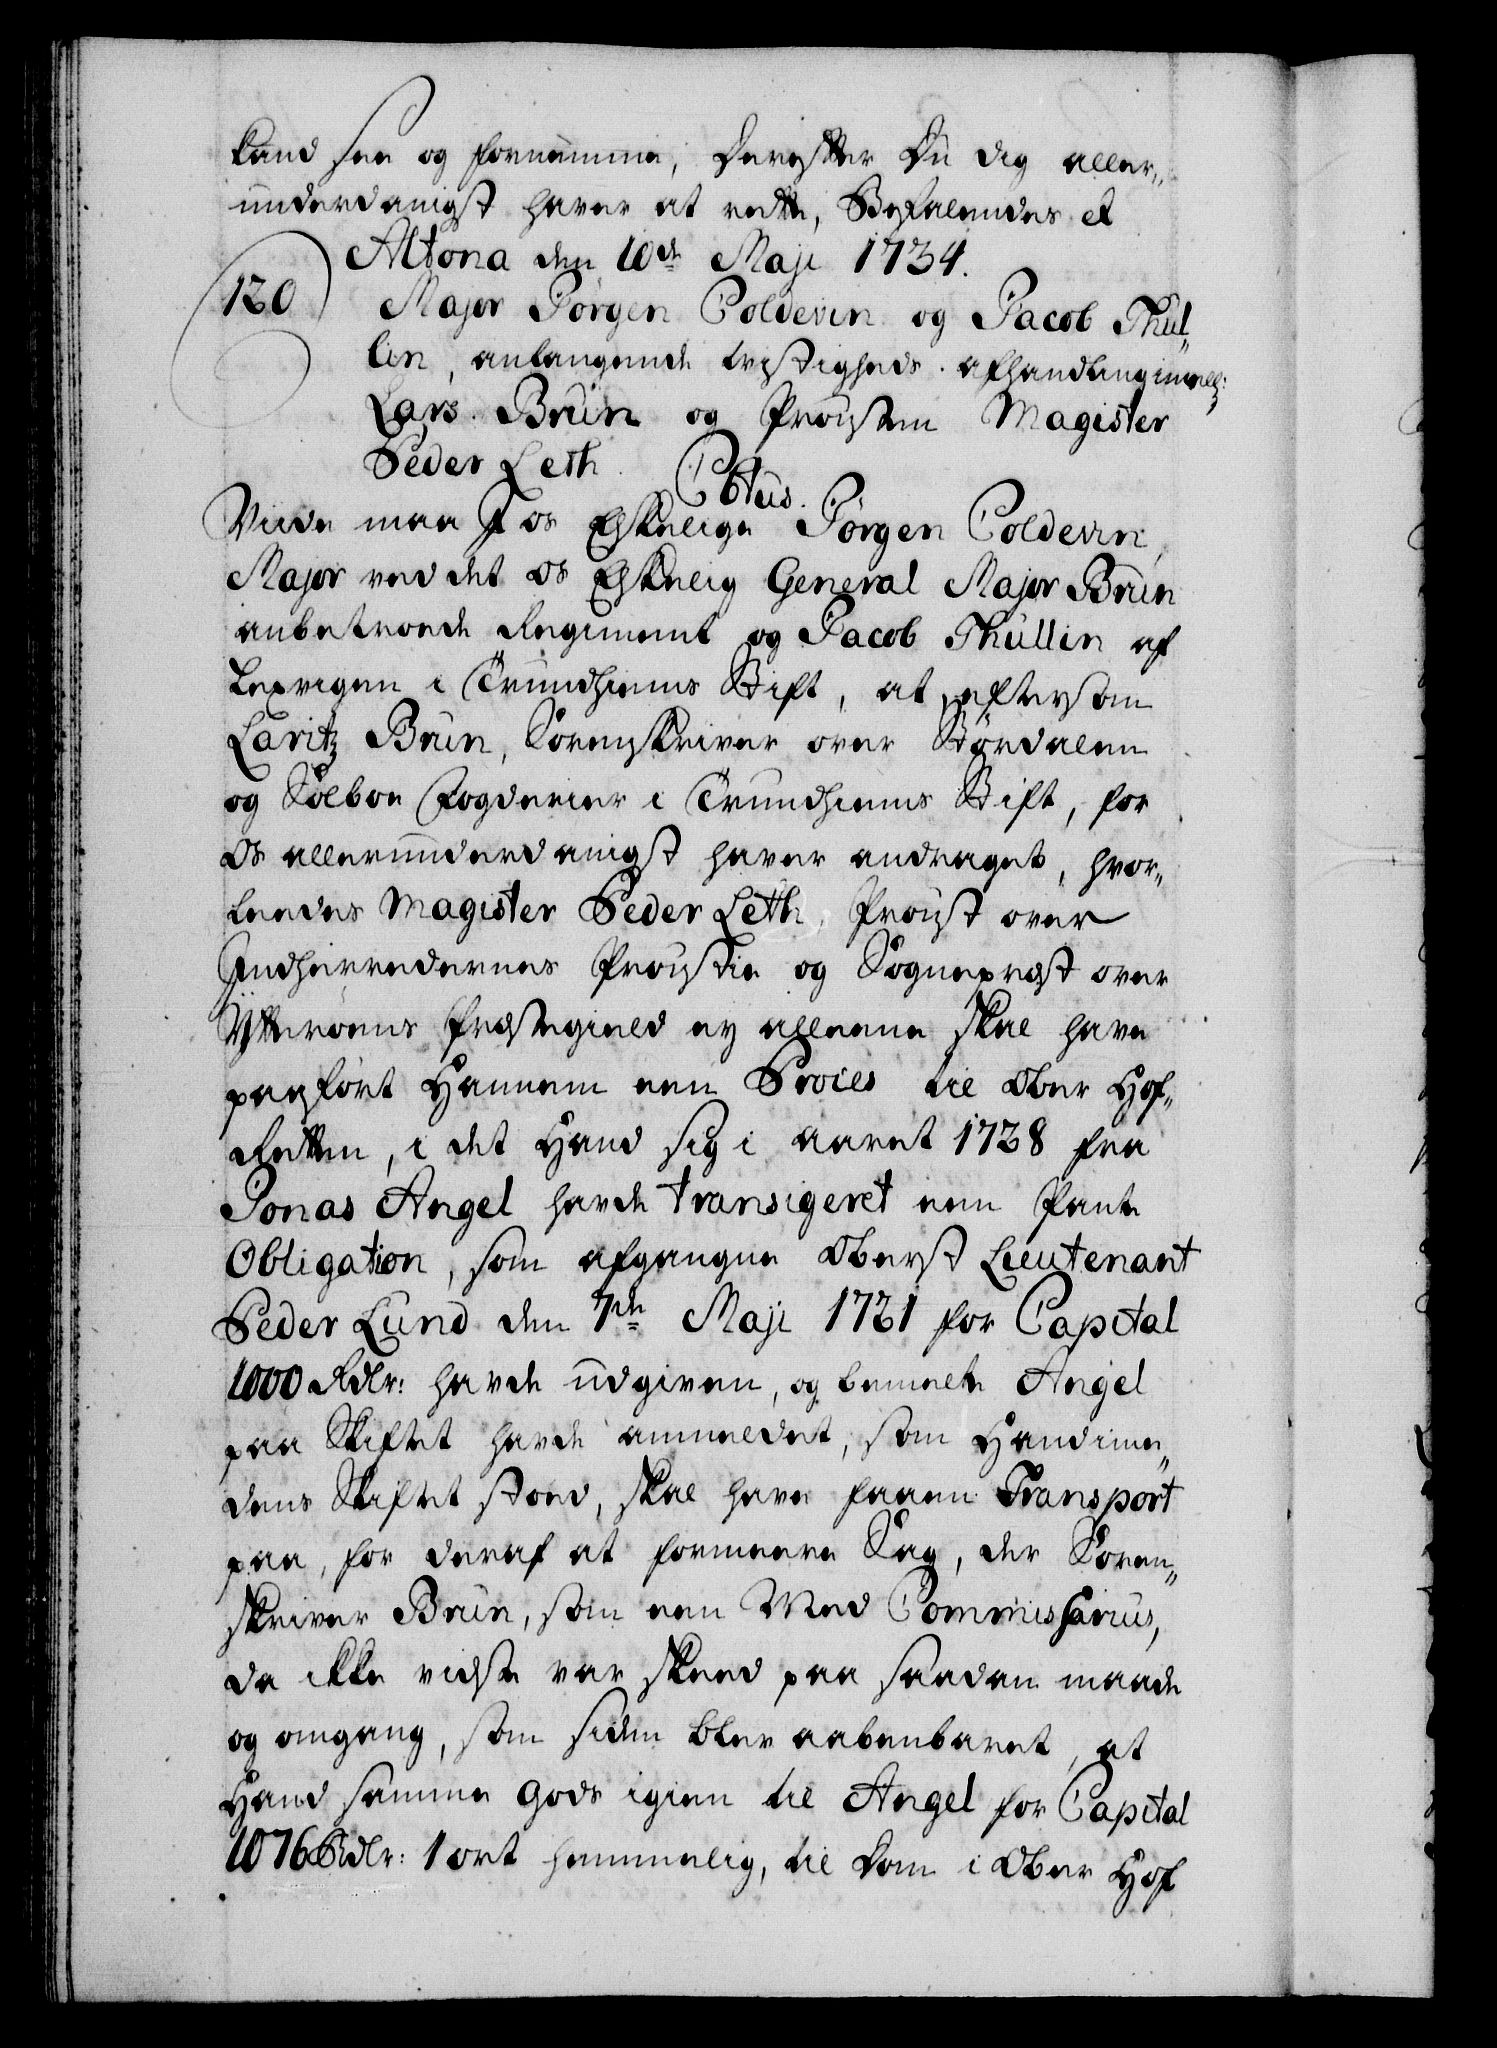 kand see og fornemme, Derefter Du dig aller„
underdanigst haver at rette, Befalendes et
Altona den 10de Maji 1734.
120 Major Jörgen Coldevin og Jacob Thul„
lin, anlangende tvistigheds afhandling imell:
Lars Brun og Provsten Magister
Peder Leth. Ctus.
Viide maa I os Elskelige Jörgen Coldevin,
Major ved det os Elskelig General Major Brun
anbetroede Regiment og Jacob Thullin af
Lexvigen i Trundhiems Stift, at eftersom
Lavritz Brun, Sorenskriver over Stördalen
og Selboe Fogderier i Trundhiems Stift, for
Os allerunderdanigst haver andraget, hvor„
leedes Magister Peder Leth, Provst over
Indherredernes Provstie og Sogneprest over
Ytteröens Præstegield ey alleene skal have
paafört Hannem een Proces til Ober Hof„
Retten, i det Hand sig i aaret 1728 fra
Jonas Angel havde transigeret een Pante
Obligation, som afgangne Oberst Lieutenant
Peder Lund den 7de Maji 1721 for Capital
1000 Rdlr: havde udgiven, og bemelte Angel
paa Skiftet havde anmeldet, som Hand imed„
dens Skiftet stoed, skal have faaen Transport
paa, for deraf at formeere Sag, der Soren„
skriver Brun, som een Med Commissarius,
da ikke vidste var skeed paa saadan maade
og omgang, som siden blev aabenbaret, at
Hand samme Gods igien til Angel for Capital
1076 Rdlr: 1 ort hemmelig, til Dom i Ober Hof